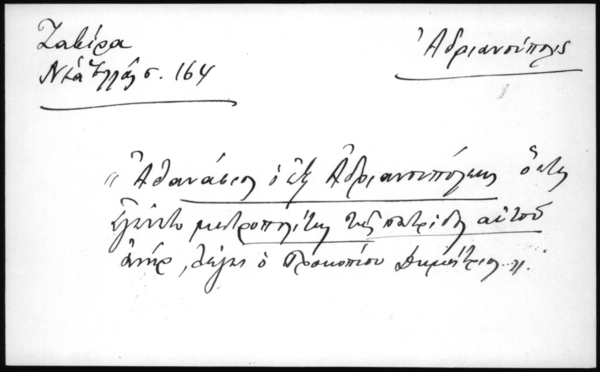 Ζαβίρα
Νέα Ἑλλάς σ. 164
Ἀδριανούπολις
"Ἀθανάσιος ὁ ἐξ Ἀδριανουπόλεως ὅστις
ἐγένετο μητροπολίτης τῆς πατρίδος αὐτοῦ
ἀνήρ, λέγει ὁ Προκοπίου Δημήτριος".